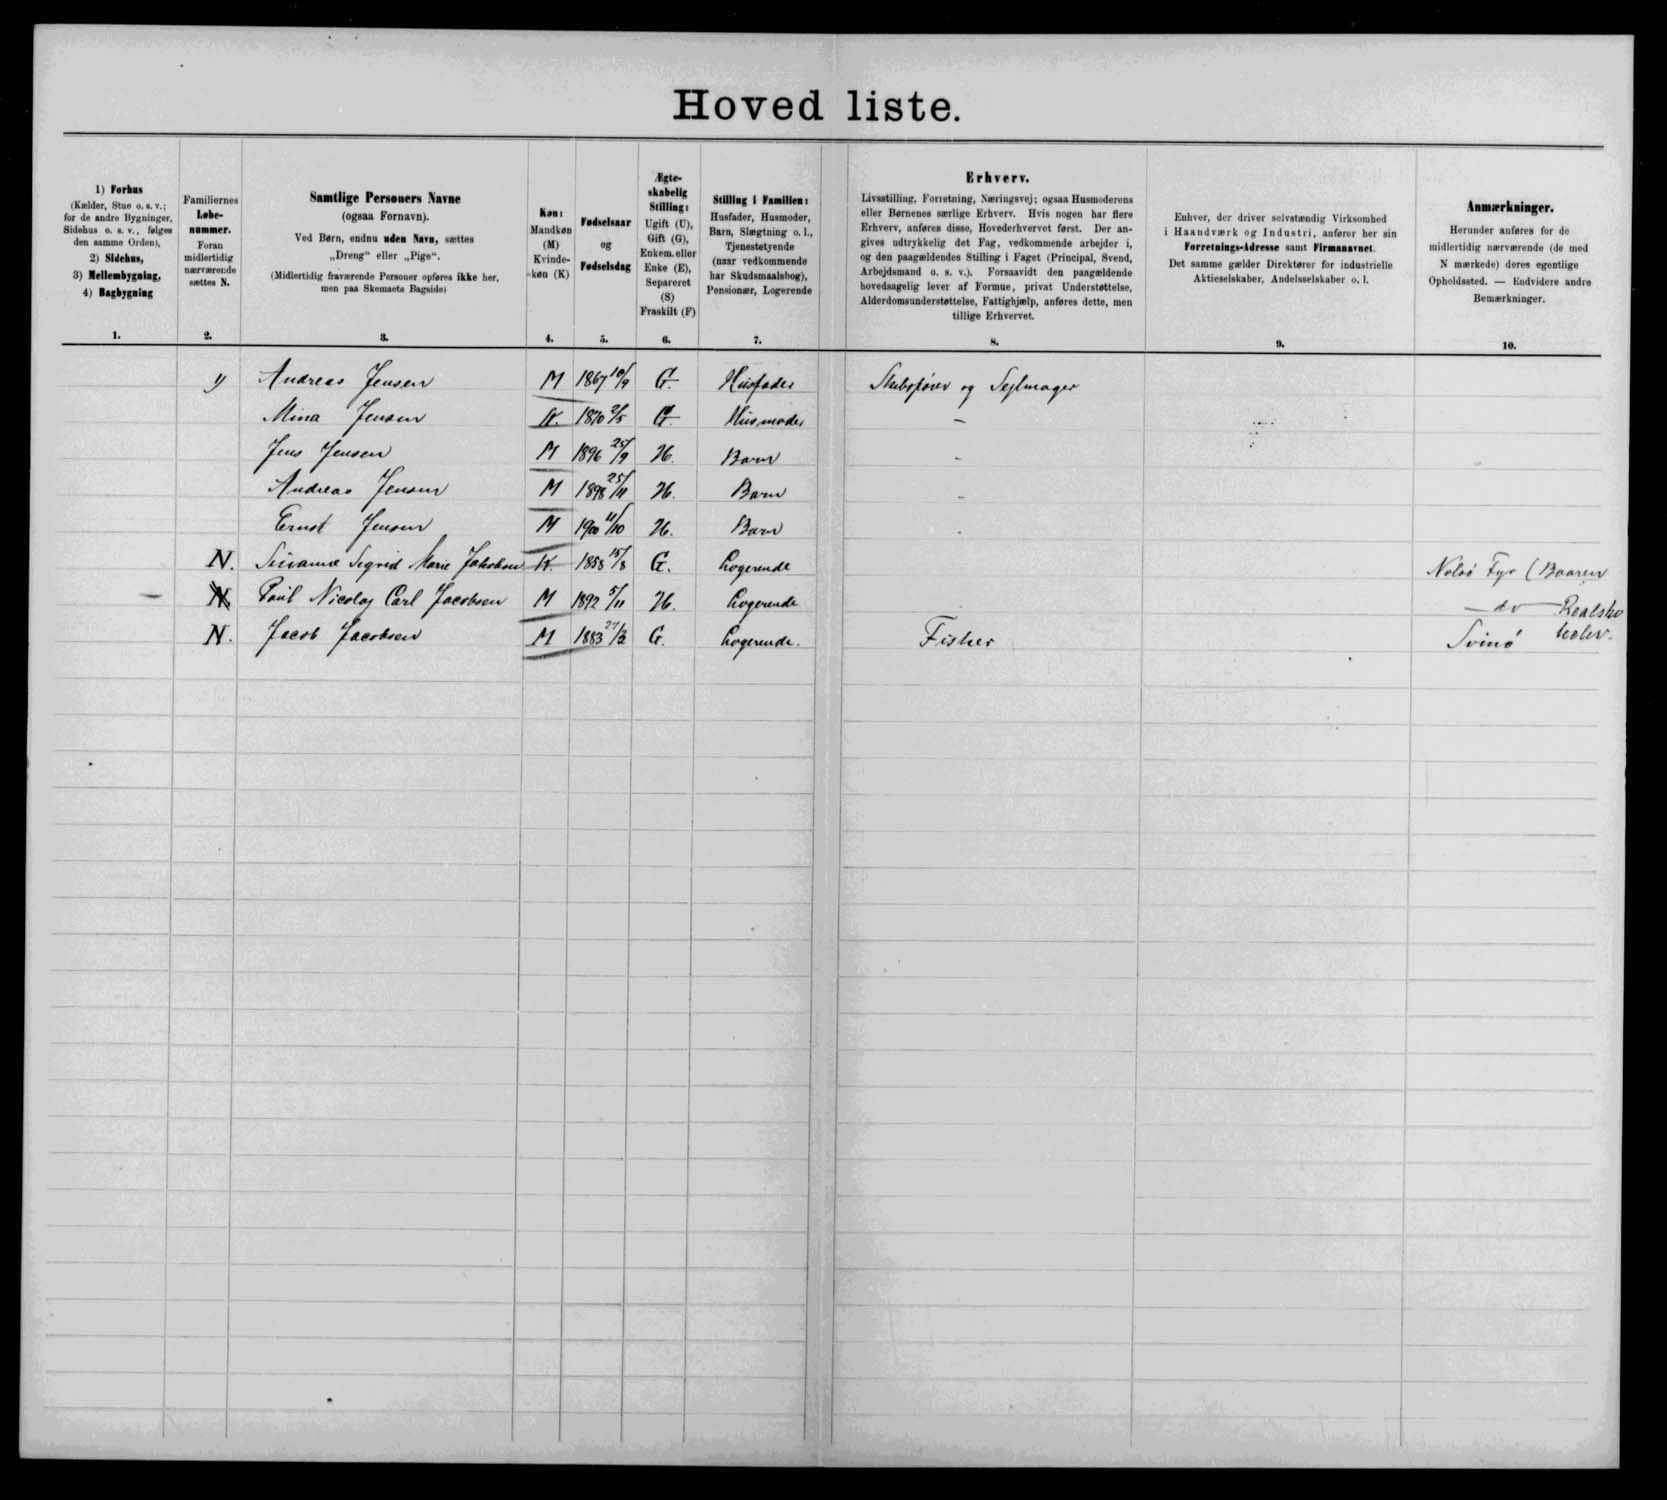 Hoved liste.
1) Forhus
(Kælder, Stue o. s. v.;
for de andre Bygninger,
Sidehus o. s. v., følges
den samme Orden),
2) Sidehus,
3) Mellembygning,
4) Bagbygning
1.
Familiernes
Løbe-
nummer.
Foran
midlertidig
nærværende
sættes N.
2.
Samtlige Personers Navne
(ogsaa Fornavn).
Ved Børn, endnu uden Navn, sættes
„Dreng“ eller „Pige“.
(Midlertidig fraværende Personer opføres ikke her,
men paa Skemaets Bagside)
3.
Køn:
Mandkøn
(M)
Kvinde-
køn (K)
4.
Fødselsaar
og
Fødselsdag
5.
Ægte-
skabelig
Stilling:
Ugift (U),
Gift (G),
Enkem. eller
Enke (E),
Separeret
(S)
Fraskilt (F)
6.
Stilling i Familien:
Husfader, Husmoder,
Barn, Slægtning o. l.,
Tjenestetyende
(naar vedkommende
har Skudsmaalsbog),
Pensionær, Logerende
7.
Erhverv.
Livsstilling, Forretning, Næringsvej; ogsaa Husmoderens
eller Børnenes særlige Erhverv. Hvis nogen har flere
Erhverv, anføres disse, Hovederhvervet først. Der an-
gives udtrykkelig det Fag, vedkommende arbejder i,
og den paagældendes Stilling i Faget (Principal, Svend,
Arbejdsmand o. s. v.). Forsaavidt den paagældende
hovedsagelig lever af Formue, privat Understøttelse,
Alderdomsunderstøttelse, Fattighjælp, anføres dette, men
tillige Erhvervet.
8.
Enhver, der driver selvstændig Virksomhed
i Haandværk og Industri, anfører her sin
Forretnings-Adresse samt Firmanavnet.
Det samme gælder Direktører for industrielle
Aktieselskaber, Andelsselskaber o. l.
9.
Anmærkninger.
Herunder anføres for de
midlertidig nærværende (de med
N mærkede) deres egentlige
Opholdssted. — Endvidere andre
Bemærkninger.
10.
1) Andreas Jensen M 1867 10/9 G. Husfader Skibsfører og Sejlmager
Mina Jensen K. 1870 2/5 G. Husmoder –
Jens Jensen M 1896 25/9 U. Barn -
Andreas Jensen M 1898 25/11 U. Barn -
Ernst Jensen M 1900 11/10 U. Barn -
N. Susanne Sigrid Marie Jakobsen K. 1858 15/8 G. Logerende Nolsø Fyr (Boaren
N Poul Nicolaj Carl Jacobsen M 1892 5/11 U. Logerende — do — Realsko
N. Jacob Jacobsen M 1883 G. Logerende. Fisker Svinø leelev.